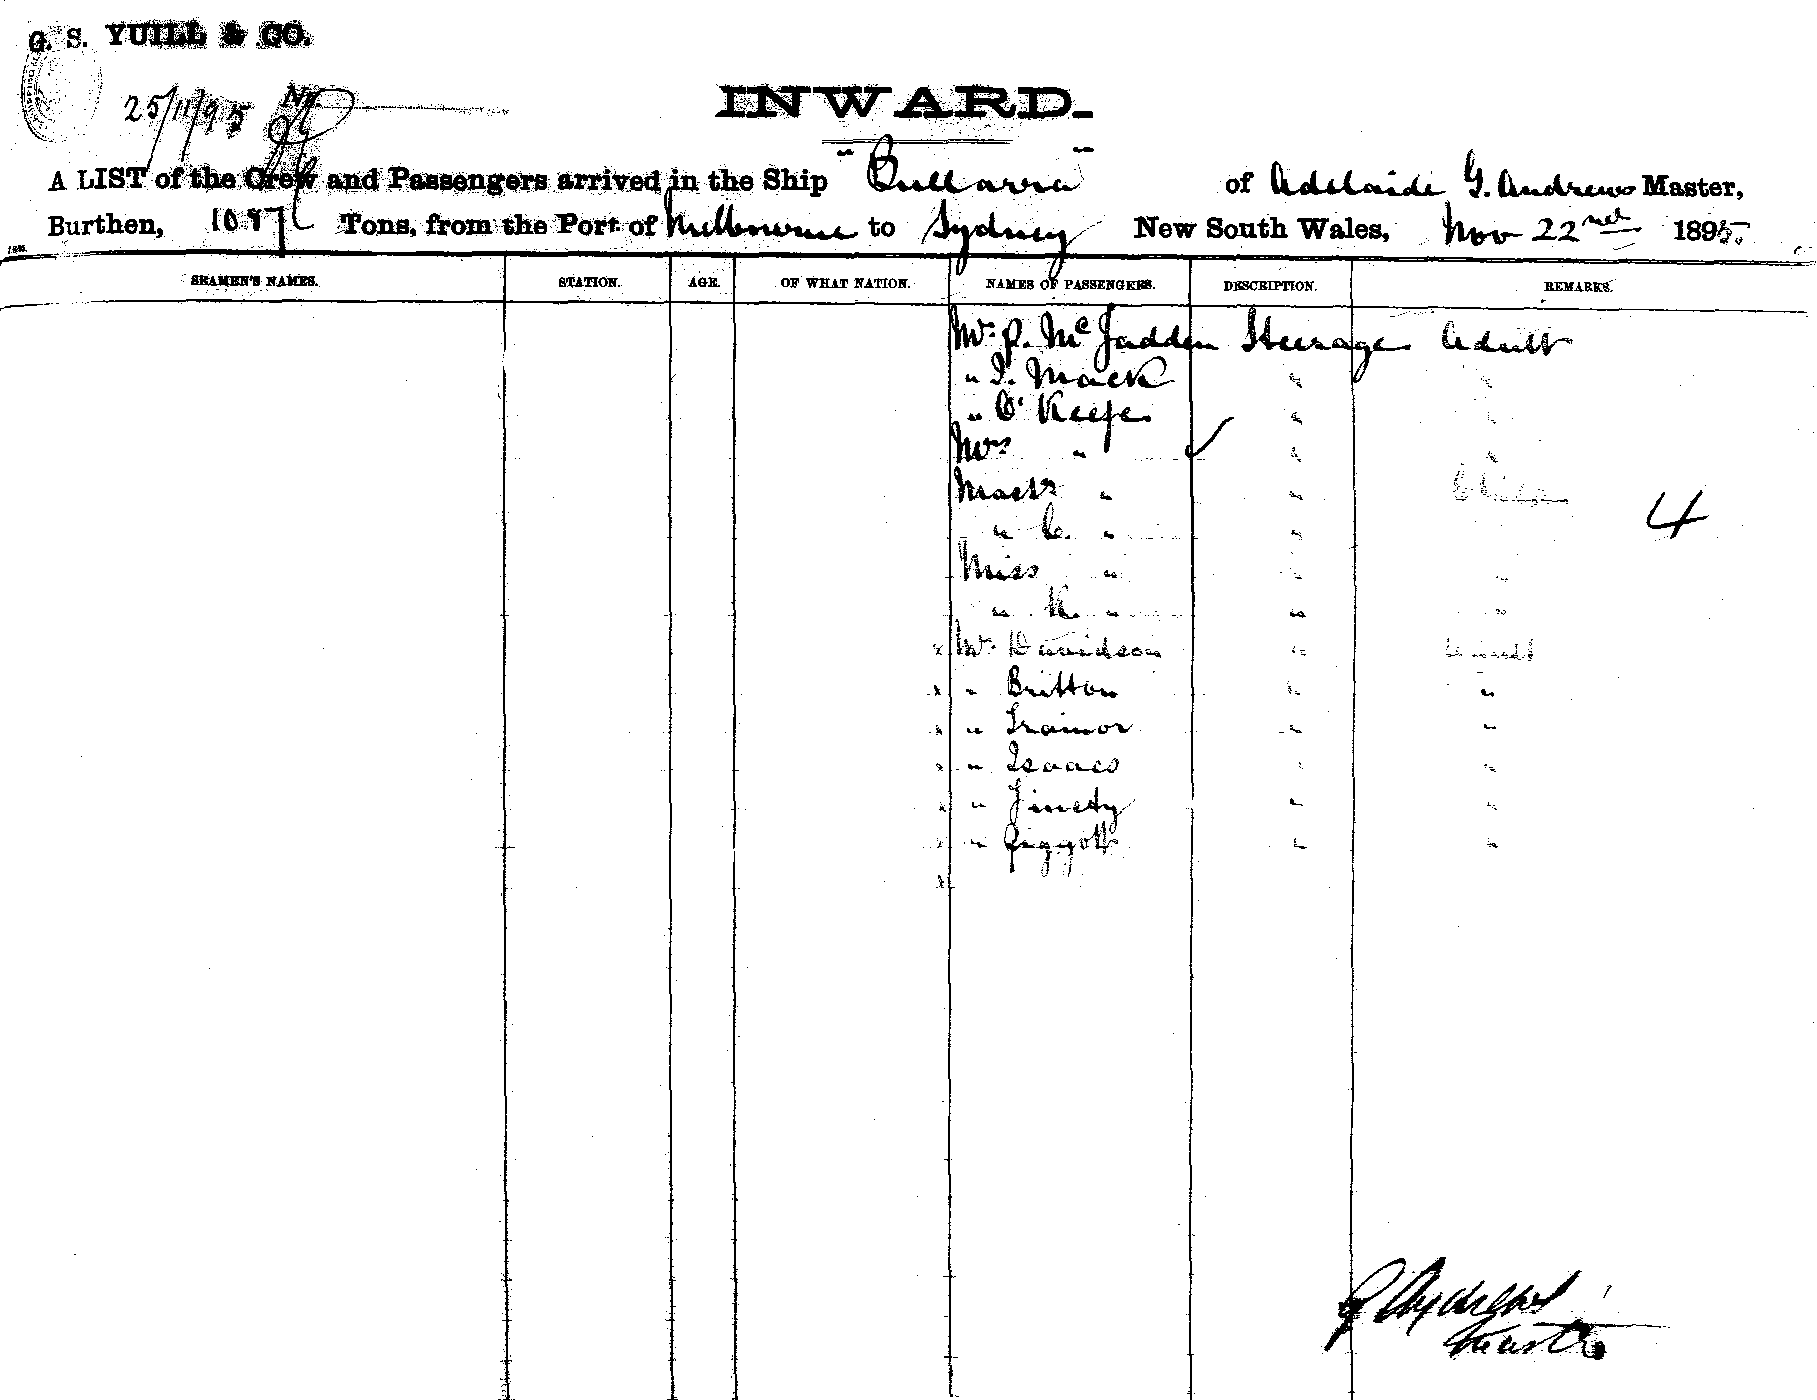 G. S. YUILL & CO.
25/11/95
INWARD.
A LIST of the Crew and Passengers arrived in the Ship "Bullarra" of Adelaide G. Andrews Master,
Burthen, Tons, from the Port of Melbourne to Sydney New South Wales, Nov 22nd 1895.
SEAMEN'S NAMES. STATION. AGE. OF WHAT NATION. NAMES OF PASSENGERS. DESCRIPTION. REMARKS.
Mr P. McFadden Steerage Adult
" I. Mack " "
" O'Keefe " "
Mrs " " "
Mastr " " Child
" C. " "
Miss " " "
" K. " " "
x Mr Davidson " Adult
x " Britton " "
x " Trainor " "
x " Isaacs " "
x " Finety " "
x " Piggott " "
x
4
G Andrews
Master